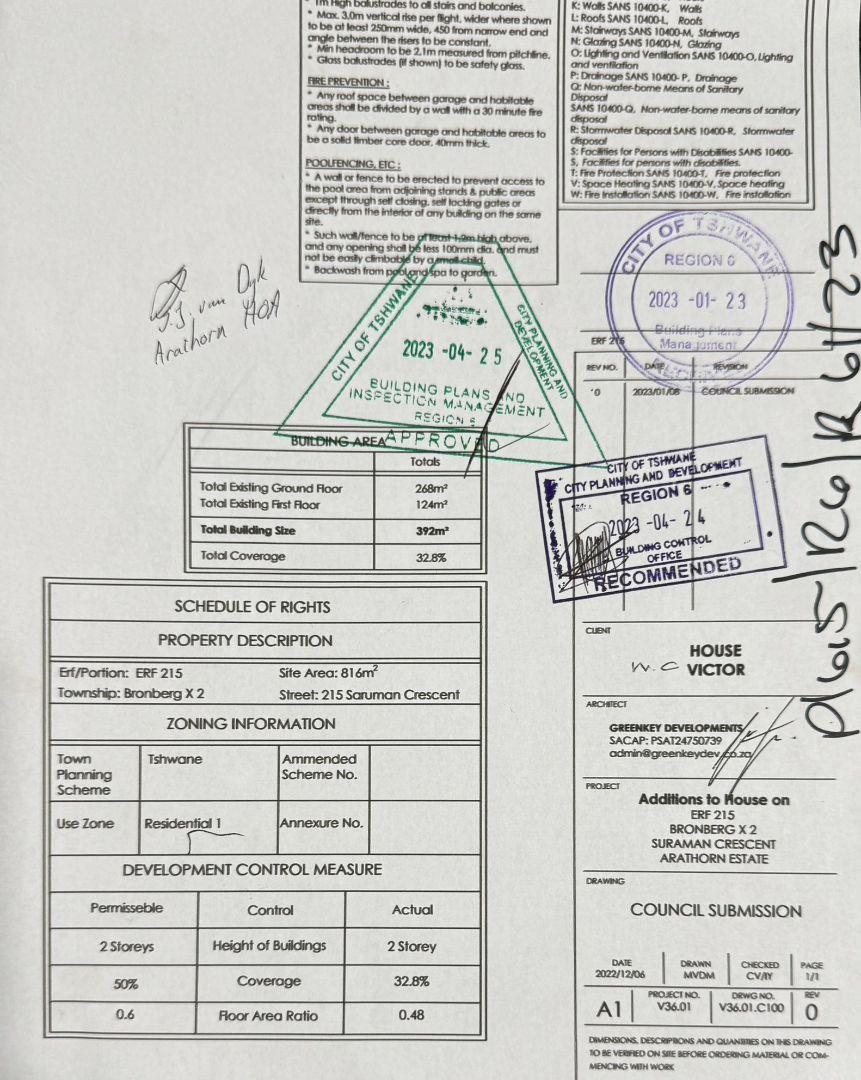 1m High balustrades to all stairs and balconies.
* Max. 3.0m vertical rise per flight, wider where shown
to be at least 250mm wide, 450 from narrow end and
angle between the risers to be constant.
* Min headroom to be 2,1m measured from pitchline.
* Glass balustrades (if shown) to be safety glass.
FIRE PREVENTION :
* Any roof space between garage and habitable
areas shall be divided by a wall with a 30 minute fire
rating.
* Any door between garage and habitable areas to
be a solid timber core door, 40mm thick.
POOLFENCING, ETC :
* A wall or fence to be erected to prevent access to
the pool area from adjoining stands & public areas
except through self closing, self locking gates or
directly from the interior of any building on the same
site.
* Such wall/fence to be at least 1.2m high above,
and any opening shall be less 100mm dia. and must
not be easily climbable by a small child.
* Backwash from pool and spa to garden.
K: Walls SANS 10400-K, Walls
L: Roofs SANS 10400-L, Roofs
M: Stairways SANS 10400-M, Stairways
N: Glazing SANS 10400-N, Glazing
O: Lighting and Ventilation SANS 10400-O, Lighting
and ventilation
P: Drainage SANS 10400- P, Drainage
Q: Non-water-borne Means of Sanitary
Disposal
SANS 10400-Q, Non-water-borne means of sanitary
disposal
R: Stormwater Disposal SANS 10400-R, Stormwater
disposal
S: Facilities for Persons with Disabilities SANS 10400-
S, Facilities for persons with disabilities.
T: Fire Protection SANS 10400-T, Fire protection
V: Space Heating SANS 10400-V, Space heating
W: Fire Installation SANS 10400-W, Fire installation
J.J. van Dyk
Arathorn HOA
CITY OF TSHWANE
CITY PLANNING AND
DEVELOPMENT
2023 -04- 25
BUILDING PLANS AND
INSPECTION MANAGEMENT
REGION 6
APPROVED
CITY OF TSHWANE
REGION 6
2023 -01- 23
Building Plans
Management
ERF 215
REV NO. DATE REVISION
0 2023/01/06 COUNCIL SUBMISSION
CITY OF TSHWANE
CITY PLANNING AND DEVELOPMENT
REGION 6
2023 -04- 24
BUILDING CONTROL
OFFICE
RECOMMENDED
BUILDING AREA
Totals
Total Existing Ground Floor 268m²
Total Existing First Floor 124m²
Total Building Size 392m²
Total Coverage 32.8%
SCHEDULE OF RIGHTS
PROPERTY DESCRIPTION
Erf/Portion: ERF 215 Site Area: 816m²
Township: Bronberg X 2 Street: 215 Saruman Crescent
ZONING INFORMATION
Town
Planning
Scheme
Tshwane
Ammended
Scheme No.
Use Zone Residential 1 Annexure No.
DEVELOPMENT CONTROL MEASURE
Permisseble Control Actual
2 Storeys Height of Buildings 2 Storey
50% Coverage 32.8%
0.6 Floor Area Ratio 0.48
CLIENT
HOUSE
VICTOR
ARCHITECT
GREENKEY DEVELOPMENTS
SACAP: PSAT24750739
admin@greenkeydev.co.za
PROJECT
Additions to House on
ERF 215
BRONBERG X 2
SURAMAN CRESCENT
ARATHORN ESTATE
DRAWING
COUNCIL SUBMISSION
DATE DRAWN CHECKED PAGE
2022/12/06 MVDM CV/IY 1/1
PROJECT NO. DRWG NO. REV
A1 V36.01 V36.01.C100 0
DIMENSIONS, DESCRIPTIONS AND QUANTITIES ON THIS DRAWING
TO BE VERIFIED ON SITE BEFORE ORDERING MATERIAL OR COM-
MENCING WITH WORK